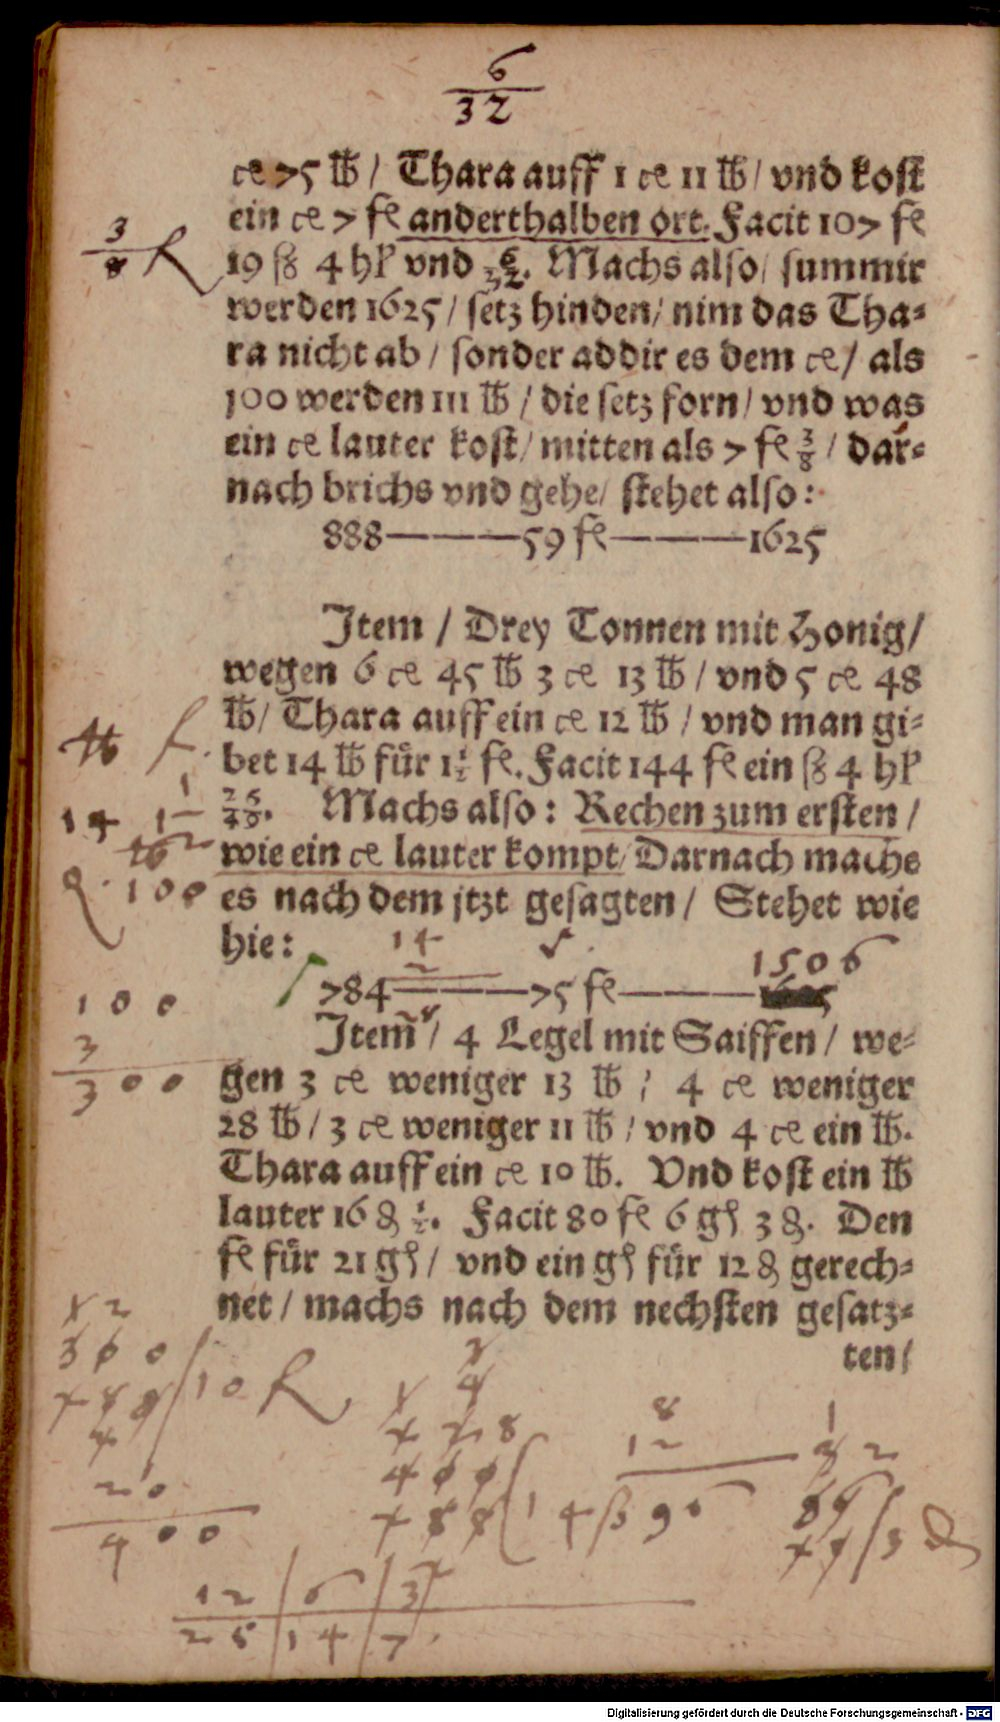 6
32
ce 75 lb / Thara auff 1 ce 11 lb / vnd kost
ein ce 7 fl anderthalben ort. Facit 107 fl
3
8 fl
19 ß 4 hl vnd 6/32. Machs also / summir
werden 1625 / setz hinden / nim das Tha-
ra nicht ab / sonder addir es dem ce / als
100 werden 111 lb / die setz forn / vnd was
ein ce lauter kost / mitten als 7 fl 3/8 / dar-
nach brichs vnd gehe / stehet also:
888———59 fl———1625
Item / Drey Tonnen mit Honig /
wegen 6 ce 45 lb 3 ce 13 lb / vnd 5 ce 48
lb / Thara auff ein ce 12 lb / vnd man gi-
lb fl
bet 14 lb für 1 1/2 fl. Facit 144 fl ein ß 4 hl
14 1 1/2
25/49. Machs also: Rechen zum ersten /
lb
wie ein ce lauter kompt / Darnach machs
100
es nach dem jtzt gesagten / Stehet wie
hie: 14
1506
784———75 fl———
100
3
300
Item / 4 Legel mit Saiffen / we-
gen 3 ce weniger 13 lb / 4 ce weniger
28 lb / 3 ce weniger 11 lb / vnd 4 ce ein lb.
Thara auff ein ce 10 lb. Vnd kost ein lb
lauter 16 ₰ 1/2. Facit 80 fl 6 gl 3 ₰. Den
fl für 21 gl / vnd ein gl für 12 ₰ gerech-
net / machs nach dem nechsten gesatz-
ten /
12
300
10 fl
20
400
8
12
14 ß 96
12 | 6 | 3
25 | 14 | 7
Digitalisierung gefördert durch die Deutsche Forschungsgemeinschaft - DFG